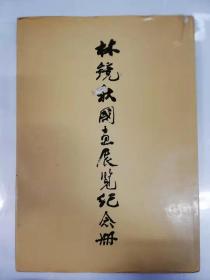 林镜秋國画展覽纪念册